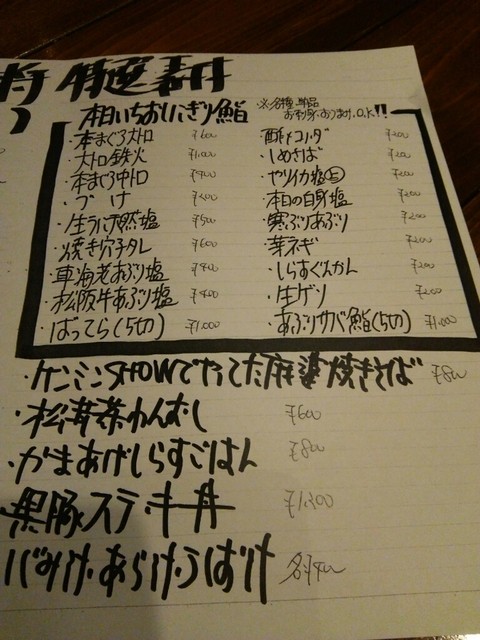 本日いちおしにぎり鮨
※各種単品お刺身・おつまみ.O.K!!
・本まぐろ大トロ ¥600
・大トロ鉄火 ¥1,000
・本まぐろ中トロ ¥400
・づけ ¥200
・生うに天然塩 ¥500
・焼き穴子タレ ¥600
・車海老あぶり塩 ¥400
・松阪牛あぶり塩 ¥400
・ばってら(5切) ¥1,000
・酢〆コハダ ¥200
・しめさば ¥200
・ヤリイカ塩 ¥200
・本日の白身塩 ¥200
・寒ぶりあぶり ¥200
・芽ネギ ¥200
・しらすぐんかん ¥200
・生ゲソ ¥200
・あぶりサバ鮨(5切) ¥1,000
・ケンミンSHOWでやってた麻婆焼きそば ¥800
・松茸茶わんむし ¥600
・かまあげしらすごはん ¥800
・黒豚ステーキ丼 ¥1,300